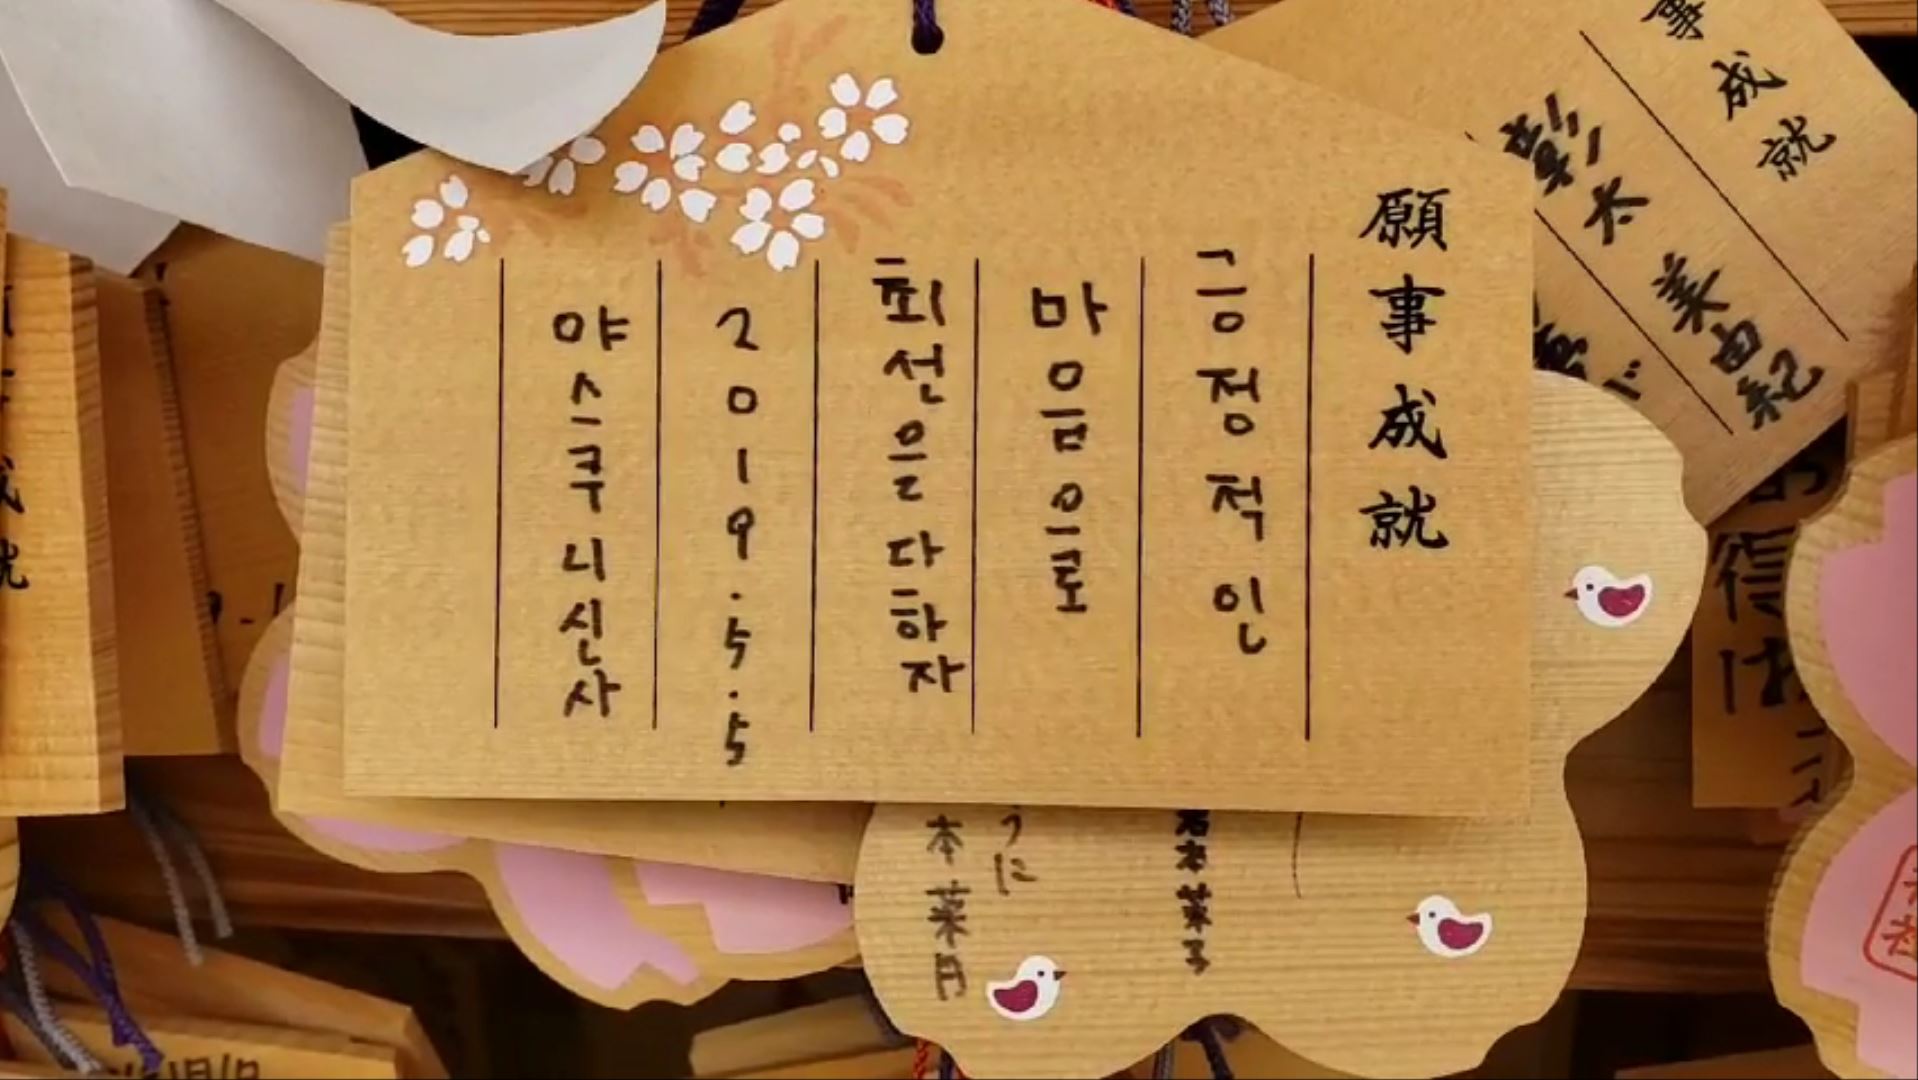 願事成就
긍정적인
마음으로
최선을다하자
2019.5.5
야스쿠니신사
事成就
彰太
美由紀
うに
本菜月
得
は